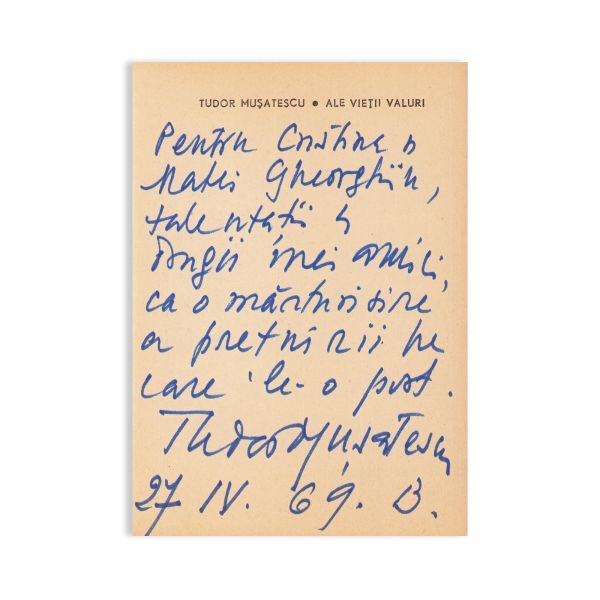 TUDOR MUȘATESCU • ALE VIEȚII VALURI
Pentru Cristina și
Matei Gheorghiu,
talentații și
dragii mei amici,
ca o mărturisire
a prețuirii pe
care le-o port.
Tudor Mușatescu
27 IV. 69. B.